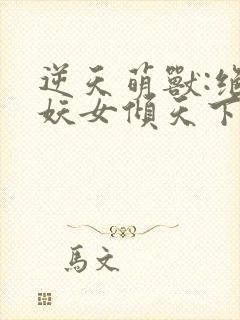 逆天萌獸:絕
妖女傾天下
馬文